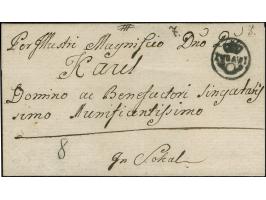 Per Illustri Magnifico Dno D
Karl
Domino ac Benefactori Singularis
simo Munificentissimo
8
In Sokal